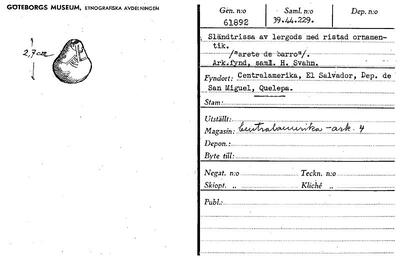 GÖTEBORGS MUSEUM, ETNOGRAFISKA AVDELNINGEN
2,7 cm
Gen. n:o
61892
Saml. n:o
39.44.229.
Dep. n:o
Sländtrissa av lergods med ristad ornamen-
tik.
/"arete de barro"/.
Ark.fynd, saml. H. Svahn.
Fyndort: Centralamerika, El Salvador, Dep. de
San Miguel, Quelepa.
Stam:
Utställt:
Magasin: Centralamerika - ask. 4
Depon.:
Byte till:
Negat. n:o
Teckn. n:o
Skiopt. „
Kliché „
Publ.: